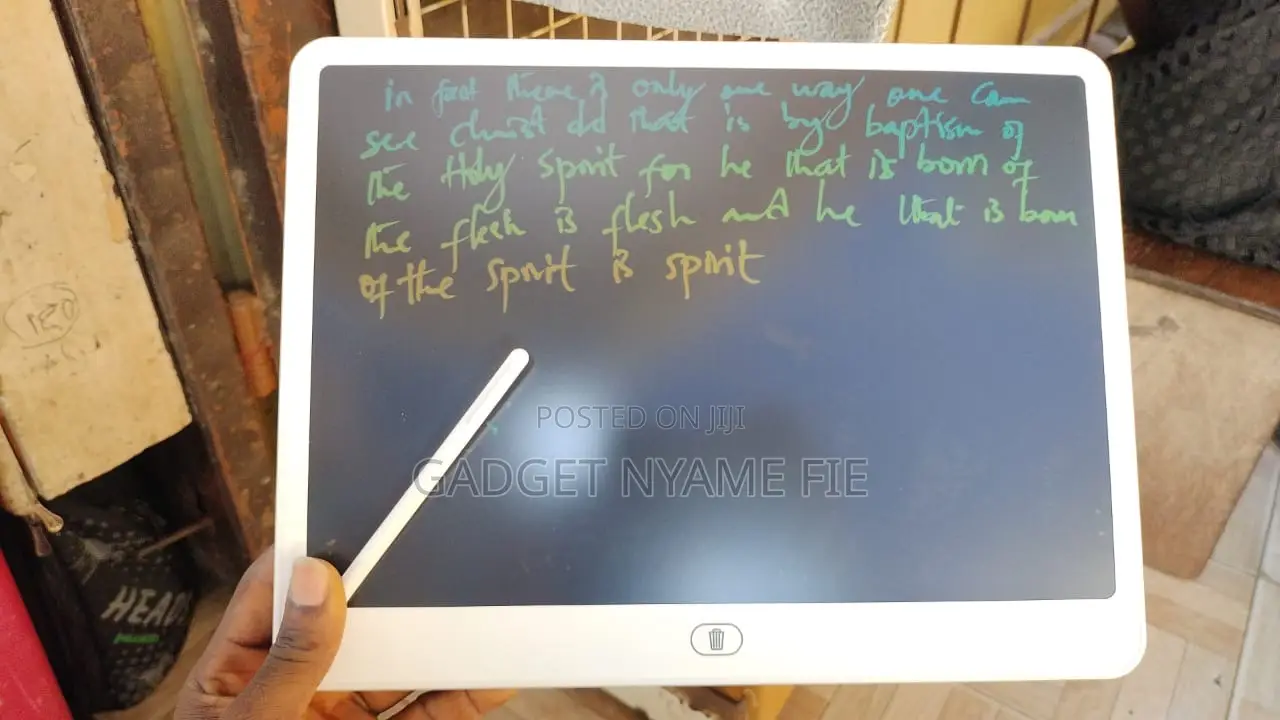 in fact there is only one way one can
see christ and that is by baptism of
the Holy Spirit for he that is born of
the flesh is flesh and he that is born
of the spirit is spirit
POSTED ON JIJI
GADGET NYAME FIE
120
HEAD